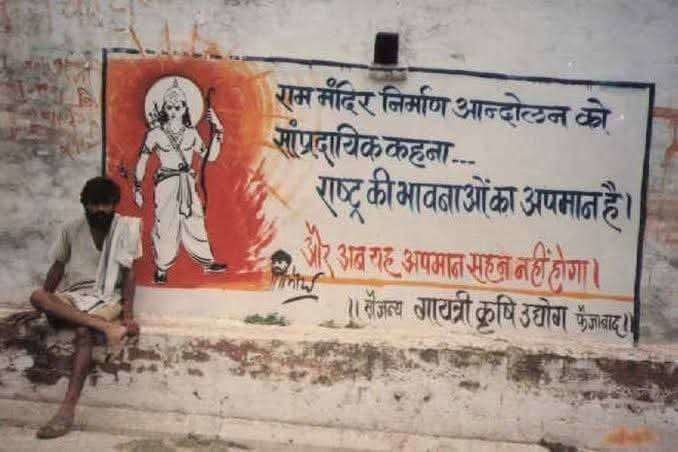 राम मंदिर निर्माण आन्दोलन को
सांप्रदायिक कहना...
राष्ट्र की भावनाओं का अपमान है।
और अब यह अपमान सहन नहीं होगा।
।। सौजन्य गायत्री कृषि उद्योग फैजाबाद ।।